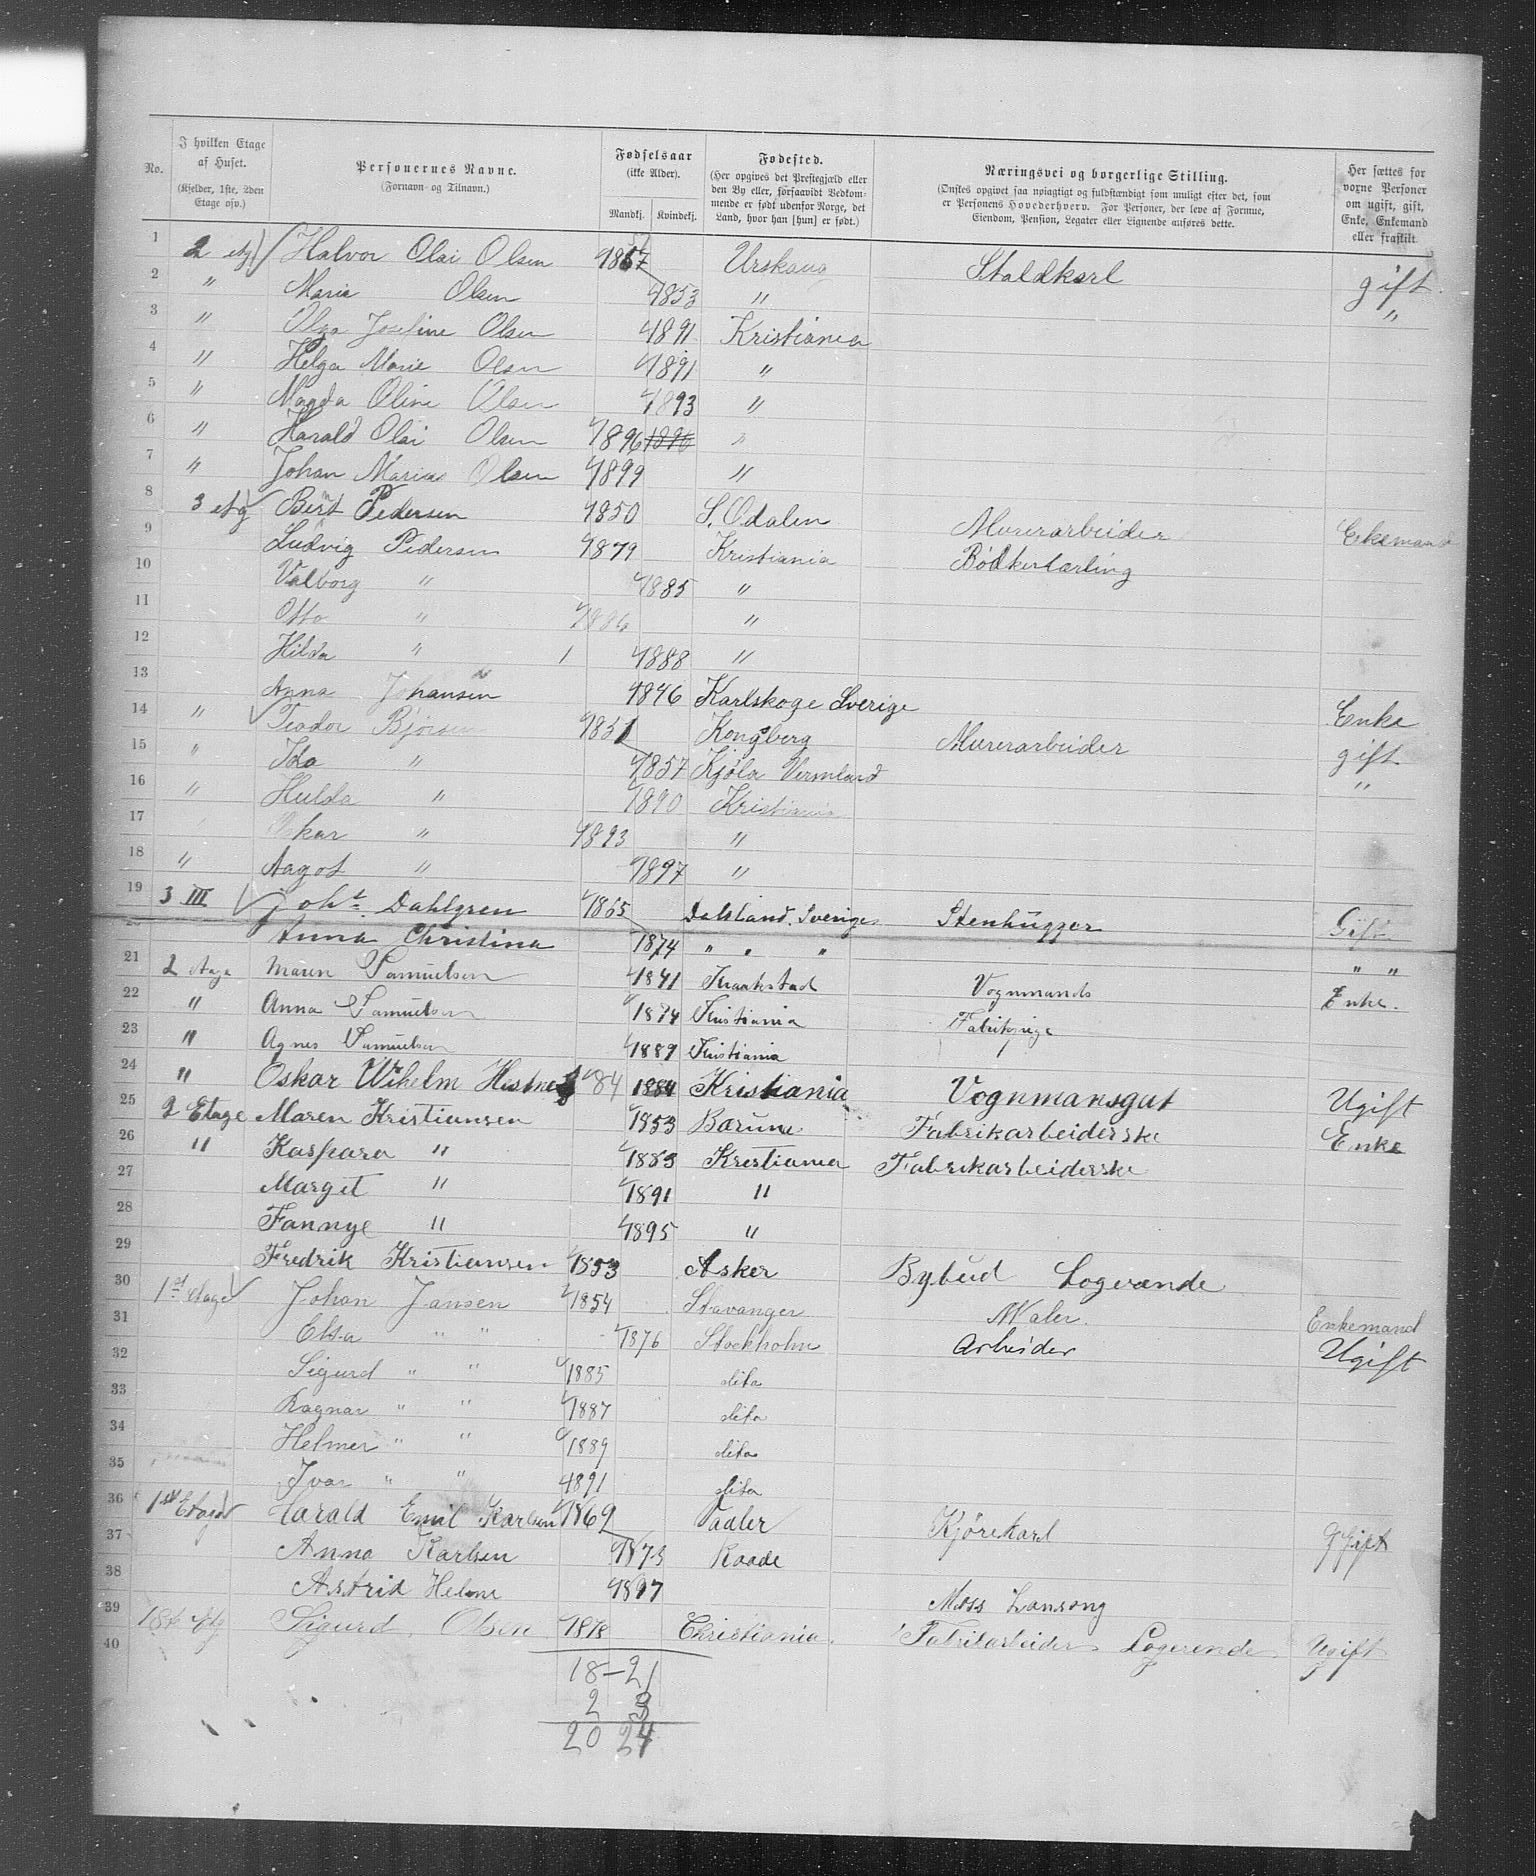 No. I hvilken Etage af Huset. (Kjelder, 1ste, 2den Etage osv.) Personernes Navne. (Fornavn- og Tilnavn.) Fødselsaar (ikke Alder). Mandkj. Kvindekj. Fødested. (Her opgives det Prestegjæld eller den By eller, forsaavidt Vedkommende er født udenfor Norge, det Land, hvor han [hun] er født.) Næringsvei og borgerlige Stilling. (Ønskes opgivet saa nøiagtigt og fuldstændigt som muligt efter det, som er Personens Hovederhverv. For Personer, der leve af Formue, Eiendom, Pension, Legater eller Lignende anføres dette. Her sættes for vorne Personer om ugift, gift, Enke, Enkemand eller fraskilt.
1 2 etg Halvor Olai Olsen 1857 Urskoug Staldkarl gift
2 " Maria Olsen 1853 " "
3 " Olga Josefine Olsen 1891 Kristiania
4 " Helga Marie Olsen 1891 "
5 " Magda Oline Olsen 1893 "
6 " Harald Olai Olsen 1896 1896 "
7 " Johan Marius Olsen 1899 "
8 3 etg Bernt Pedersen 1850 S. Odalen Murerarbeider Enkemand
9 Ludvig Pedersen 1879 Kristiania Bödkerlærling
10 Valborg " 1885 "
11 Otto " 1886 "
12 Hilda " 1888 "
13 Anna Johansen 1846 Karlskoge Sverige Enke
14 " Teodor 1851 Kongsberg Murerarbeider gift
15 " Ida " 1857 Kjøla Vermland "
16 " Hulda " 1890 Kristiania
17 Oskar " 1893 "
18 " Aagot " 1897 "
19 3 III Joht. Dahlgren 1865 Dalsland. Sverige Stenhugger Gift
Anna Christina 1874 " " " " "
21 2 Etage Maren Samuelsen 1841 Kraakstad Vognmands Enke.
22 " Anna Samuelsen 1874 Kristiania Fabrikpige
23 " Agnes Samuelsen 1889 Kristiania
24 " Oskar Wihelm 84 1884 Kristiania Vognmansgut Ugift
25 2 Etage Maren Kristiansen 1853 Bærum Fabrikarbeiderske Enke
26 " Kaspara " 1885 Kristiania Fabrikarbeiderske
27 Margit " 1891 "
28 Fannye " 1895 "
29 Fredrik Kristiansen 1853 Asker Bybud Logerende
30 1st etage Johan Jansen 1854 Stavanger Maler. Enkemand
31 Elsa " " 1876 Stockholm Arbeider Ugift
32 Sigurd " " 1885 dito
33 Ragnar " " 1887 dito
34 Helmer " " 1889 dito
35 Ivar " " 1891 dito
36 1st Etage Harald Emil Karlsen 1869 Vaaler Kjørekarl gift
37 Anna Karlsen 1873 Raade
38 Astrid Helene 1897 Moss
39 1ste Etg Sigurd Olsen 1878 Christiania. Fabrikarbeider Logerende Ugift
40
18-21
2 3
20 24